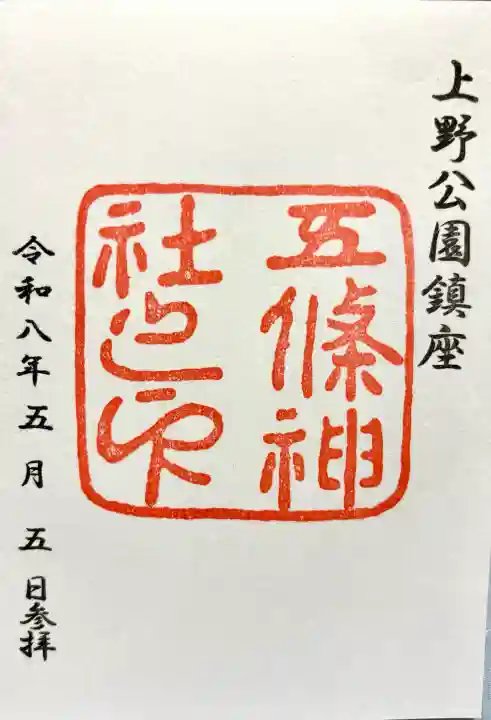 上野公園鎮座
五條神
社之印
令和八年五月五日参拝